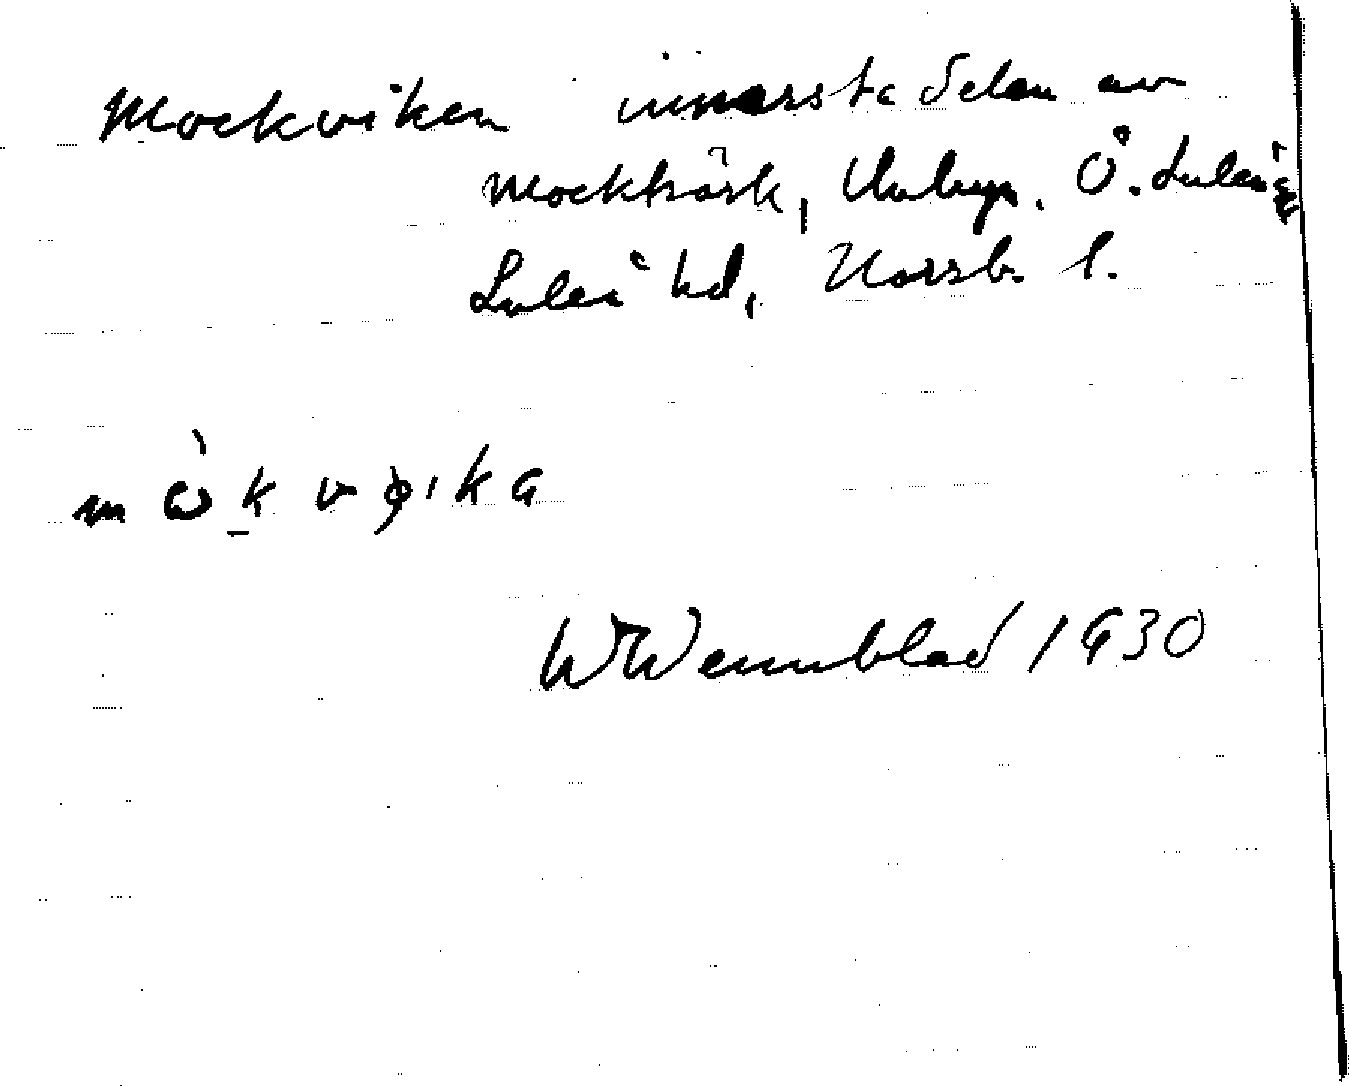 Mockviken innersta delen av
Mockträsk, Unbyn. Ö. Luleå sn
Luleå hd, Norrb. l.
W Wennblad 1930